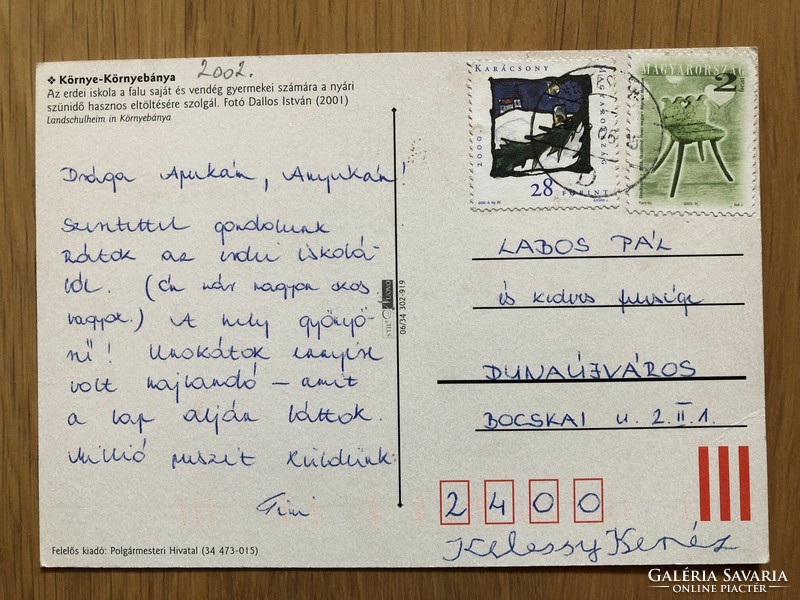 ❖ Környe-Környebánya 2002.
Az erdei iskola a falu saját és vendég gyermekei számára a nyári
szünidő hasznos eltöltésére szolgál. Fotó Dallos István (2001)
Landschulheim in Környebánya
Drága Apukám, Anyukám!
Szeretettel gondolunk
Rátok az erdei iskolá-
ból. (Én már nagyon okos
vagyok.) A hely gyönyö-
rű! Unokátok ennyire
volt hajlandó – amit
a lap alján láttok.
Millió puszit küldünk:
Timi
Felelős kiadó: Polgármesteri Hivatal (34 473-015)
06/34 302-919
KARÁCSONY
2000.
MAGYARORSZÁG
28 FORINT
MAGYARORSZÁG
2
LABOS PÁL
és kedves felesége
DUNAÚJVÁROS
BOCSKAI u. 2. II. 1.
2400
GALÉRIA SAVARIA
ONLINE PIACTÉR